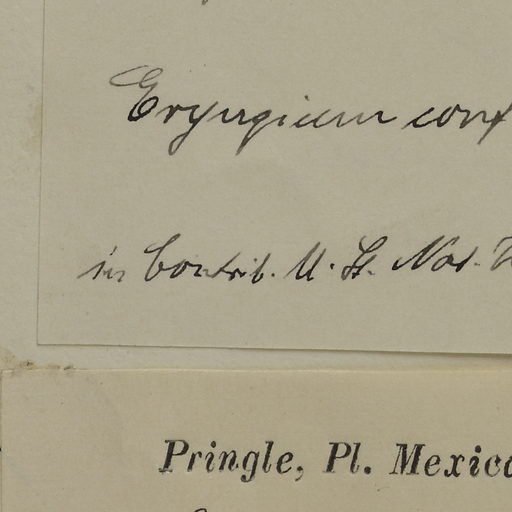 Eryngium conf
in Contrib. U. St. Nat.
Pringle, Pl. Mexica